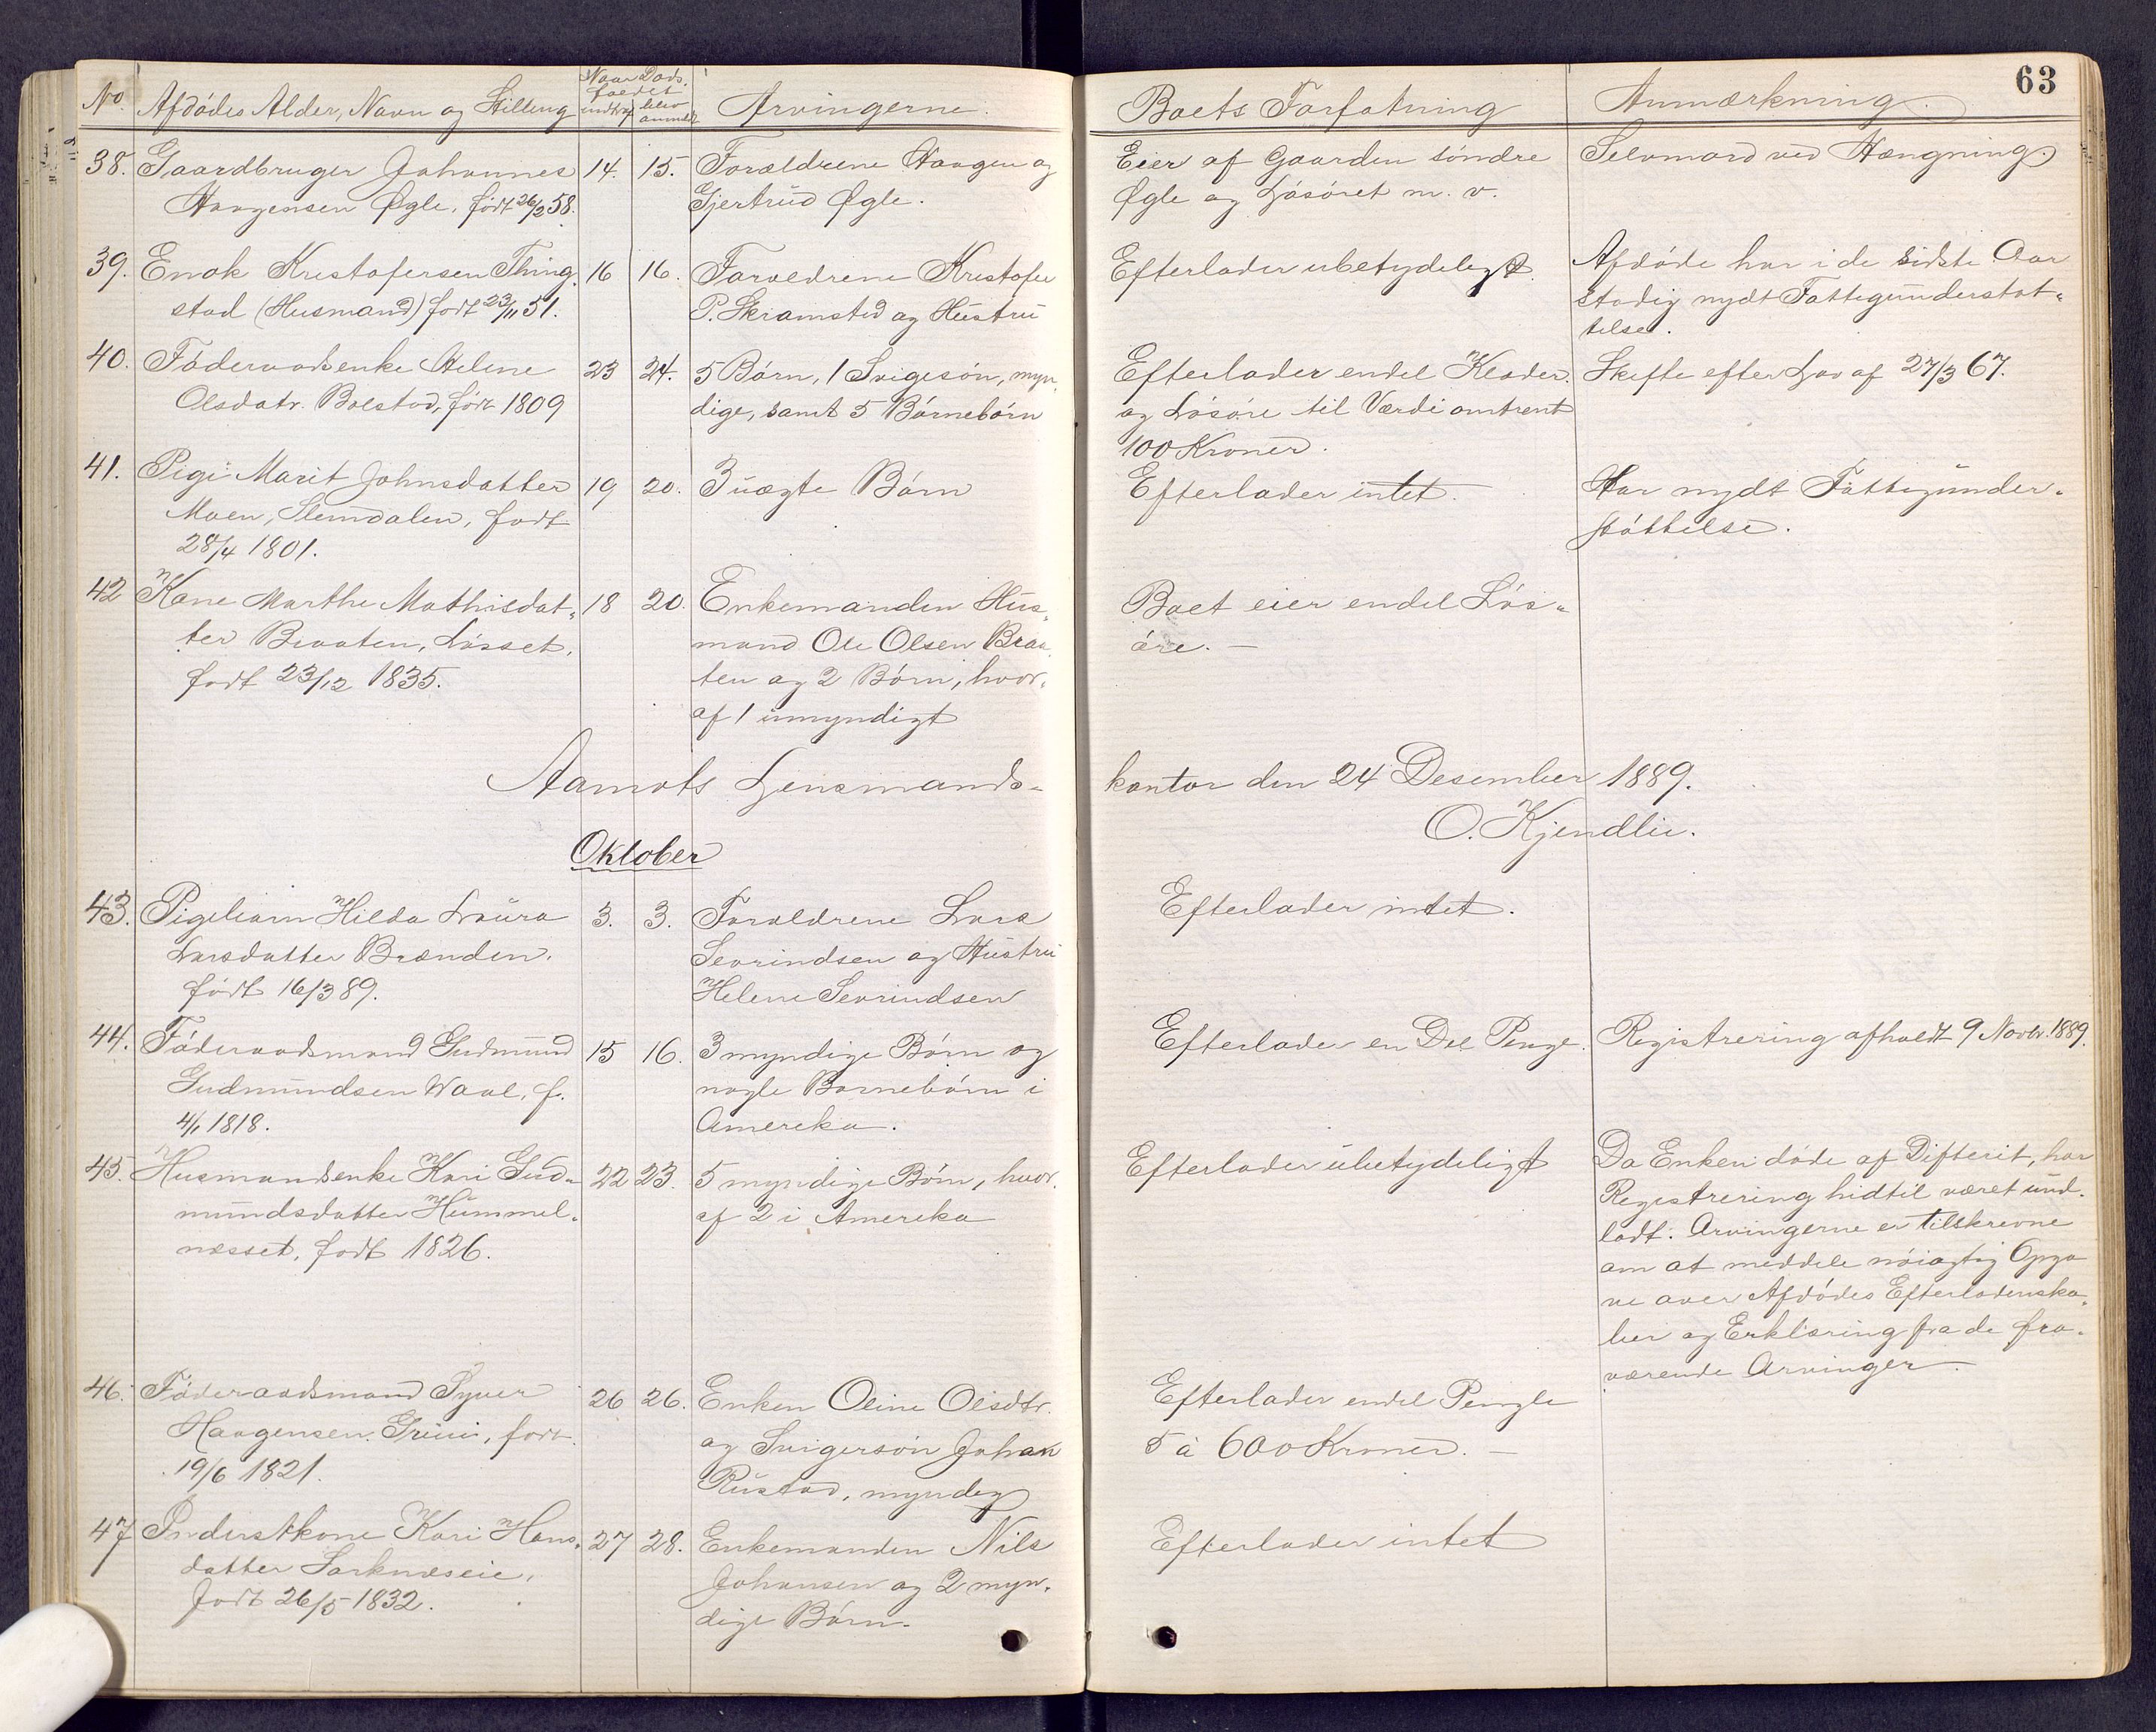 63
No. Afdødes Alder, Navn og Stilling Naar Døds- Arvingerne. Boets Forfatning Anmærkning.
faldet
indtraf blev
anmeldt
38. Gaardbruger Johannes 14. 15. Forældrene Haagen og Eier af Gaarden søndre Selvmord ved Hængning.
Haagensen Øgle, født 26/2 58. Gjertrud Øgle. Øgle og Løsøret m. v.
39. Enok Kristofersen Thing- 16 16. Forældrene Kristofer Efterlader ubetydeligt Afdøde har i de sidste Aar
stad (Husmand) født 23/11 51. P. Skramstad og Hustru stadig nydt Fattigunderstøt-
telse.
40. Føderaadsenke Helene 23 24. 5 Børn, 1 Svigesøn, myn- Efterlader endel Klæder Skifte efter Lov af 27/3 67.
Olsdatr. Bolstad, født 1809 dige, samt 5 Børnebørn og Løsøre til Værdi omtrent
100 Kroner.
41. Pige Marit Johnsdatter 19 20. 3 uægte Børn Efterlader intet. Har nydt Fattigunder-
Moen, Slemdalen, født støttelse.
28/4 1801.
42 Kone Marthe Mathisdat- 18 20. Enkemanden Hus- Boet eier endel Løs-
ter Braaten, Løsset, mand Ole Olsen Braa- øre. —
født 23/12 1835. ten og 2 Børn, hvor-
af 1 umyndigt
Aamots Lensmands- kontor den 24 Desember 1889.
O. Kjendlie.
Oktober
43. Pigebarn Hilda Laura 3. 3. Forældrene Lars Efterlader intet.
Larsdatter Brænden, Sevrindsen og Hustru
født 16/3 89. Helene Sevrindsen
44. Føderaadsmand Gudmund 15 16. 3 myndige Børn og Efterlader en Del Penge. Registrering afholdt 9 Novbr. 1889.
Gudmundsen Waal, f. nogle Børnebørn i
4/1 1818. Amerika.
45. Husmandsenke Kari Gud- 22 23. 5 myndige Børn, hvor- Efterlader ubetydeligt Da Enken døde af Difterit, har
mundsdatter Hummel- af 2 i Amerika Registrering hidtil været und-
næsset, født 1826. ladt. Arvingerne er tilskrevne
om at meddele nøiagtig Opga-
ve over Afdødes Efterladenska-
ber og Erklæring fra de fra-
værende Arvinger.
46. Føderaadsmand Syver 26 26. Enken Oline Olsdtr. Efterlader endel Penge
Haagensen Grini, født og Svigersøn Johan 5 à 600 Kroner. —
19/6 1821. Rustad, myndig
47 Inderstkone Kari Hans- 27 28. Enkemanden Nils Efterlader intet
datter Sorknæseie, Johansen og 2 myn-
født 26/5 1832. dige Børn.